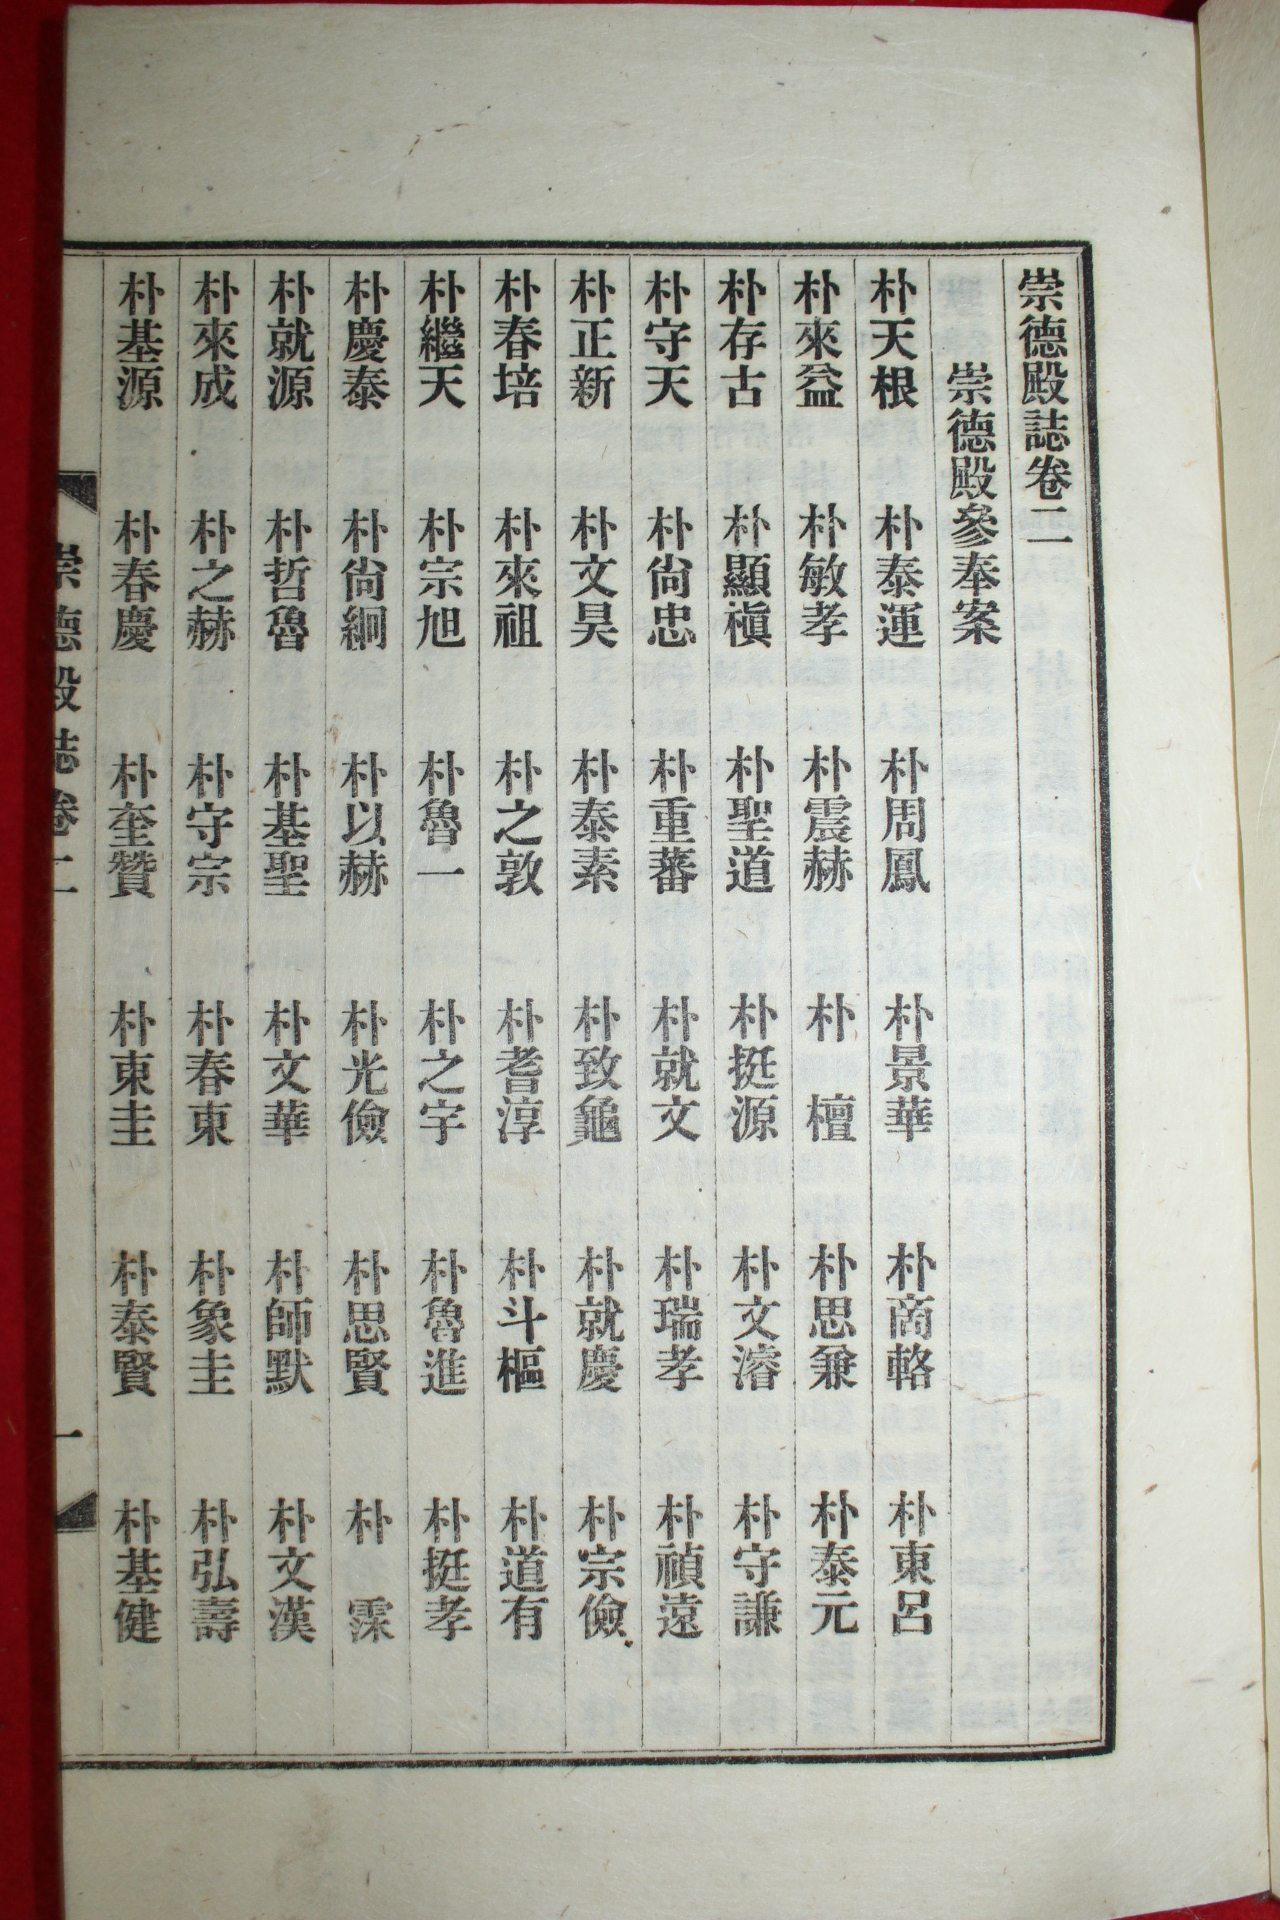 崇德殿誌卷二
崇德殿參奉案
朴天根 朴泰運 朴周鳳 朴景華 朴商輅 朴東呂
朴來益 朴敏孝 朴震赫 朴檀 朴思兼 朴泰元
朴存古 朴顯禛 朴聖道 朴挺源 朴文濬 朴守謙
朴守天 朴尙忠 朴重蕃 朴就文 朴瑞孝 朴禎遠
朴正新 朴文昊 朴泰素 朴致龜 朴就慶 朴宗儉
朴春培 朴來祖 朴之敦 朴耆淳 朴斗樞 朴道有
朴繼天 朴宗旭 朴魯一 朴之宇 朴魯進 朴挺孝
朴慶泰 朴尙絅 朴以赫 朴光儉 朴思賢 朴霂
朴就源 朴哲魯 朴基聖 朴文華 朴師默 朴文漢
朴來成 朴之赫 朴守宗 朴春東 朴象圭 朴弘壽
朴基源 朴春慶 朴奎贊 朴東圭 朴泰賢 朴基健
崇德殿誌卷二 一